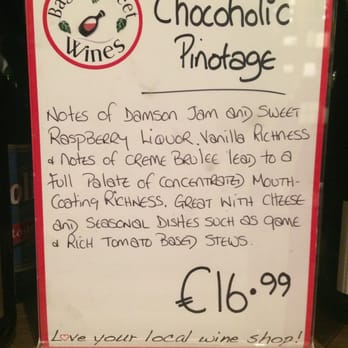 Wines
Chocoholic
Pinotage
Notes of Damson Jam and Sweet
Raspberry Liquor. Vanilla Richness
& Notes of Creme Brulee lead to a
Full Palate of Concentrated Mouth-
Coating Richness. Great with Cheese
and Seasonal Dishes such as game
& Rich Tomato Based Stews.
€16.99
Love your local wine shop!